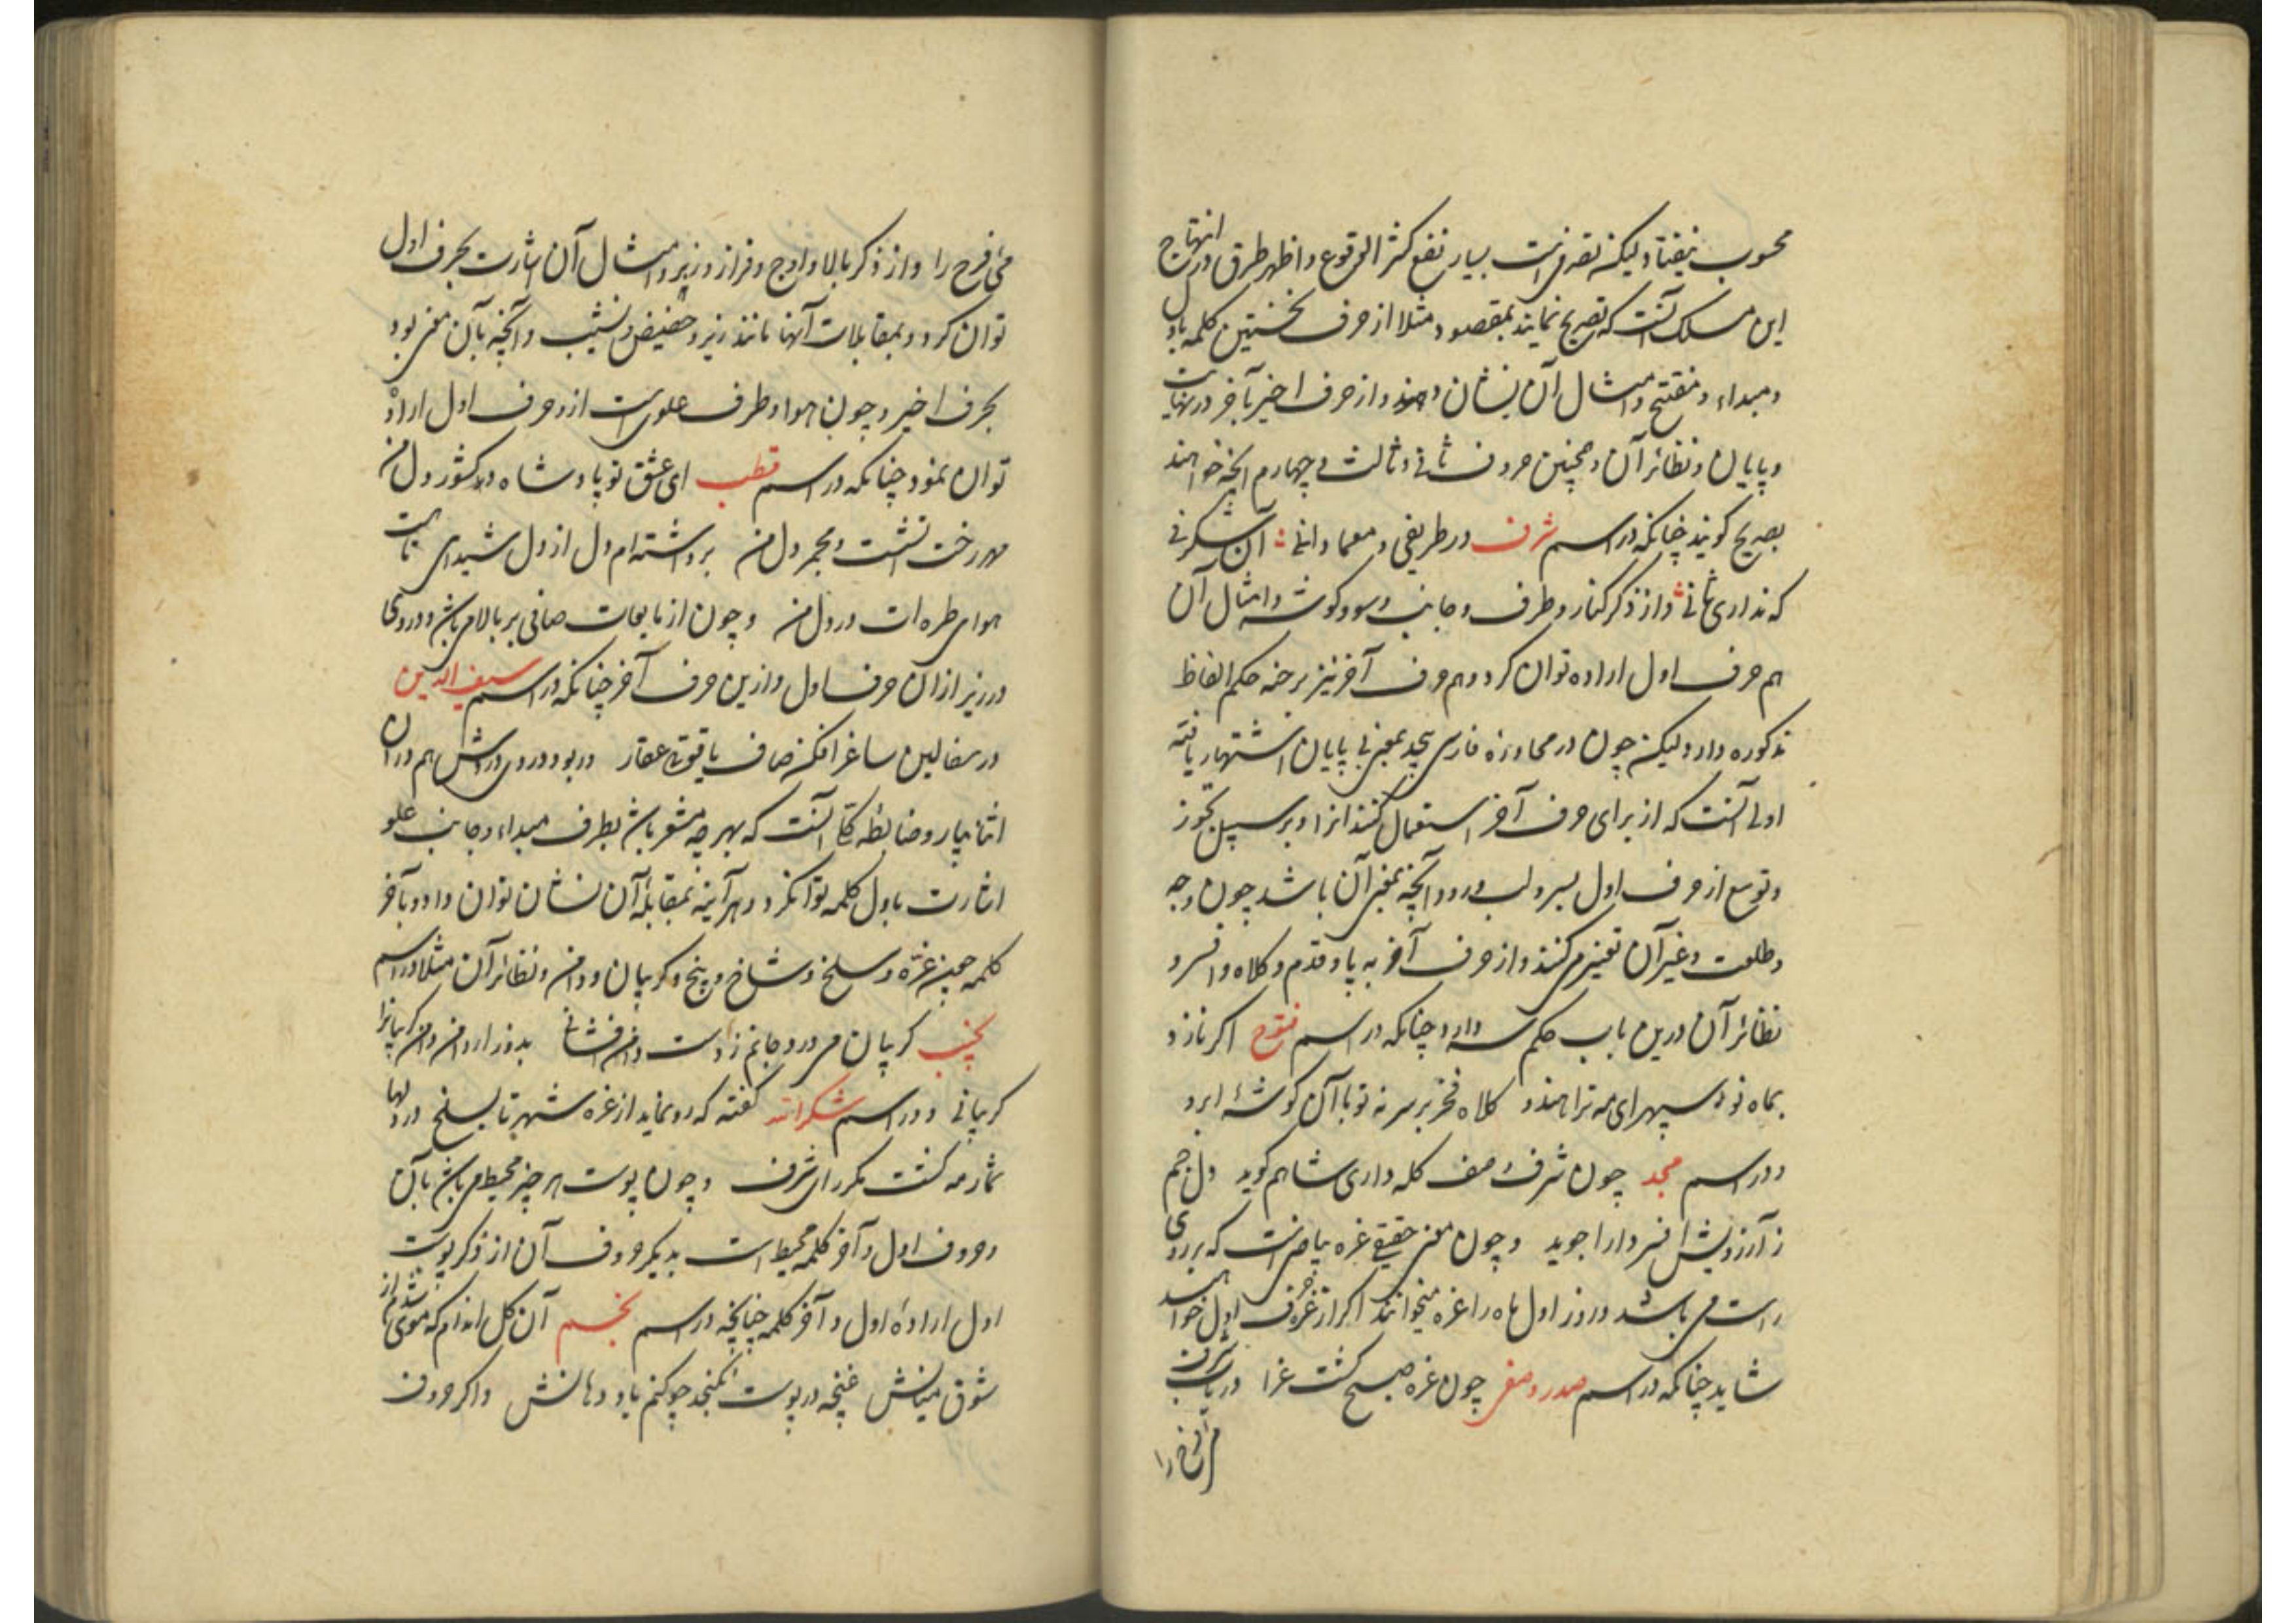 محسوب نیفتاد ولیکن تصرفیست بسیار نفع کثیر الوقوع و اظهر طرق انتهاج درین
این مسلک آنست که تصریح نمایند بمقصود مثلا از حرف نخستین کلمه باول
و مبداء و مفتتح و امثال آن نشان دهند و از حرف اخیر بآخر و نهایت
و پایان و نظائر آن و همچنین حروف ثانی و ثالث و چهارم آنچه خواهند
بصریح کویند چنانکه در اسم شرف در ظریفی و معما دانی آن شکرفی
که نداری ثانی و از ذکر کنار و طرف و جانب و سو و کوشه و امثال آن
هم حرف اول اراده توان کرد و هم حرف آخر نیز برخه حکم الفاظ
مذکوره دارد ولیکن چون در محاوره فارسی بیحد بمعنی بی پایان اشتهار یافته
اولی آنست که از برای حرف آخر استعمال کنند انرا و بر سبیل تجوز
و توسع از حرف اول بسر و لب و رو و آنچه بمعنی آن باشد چون وجه
و طلعت و غیر آن تعبیر می کنند و از حرف آخر به پا و قدم و کلاه و افسر و
نظائر آن درین باب حکم سر دارد چنانکه در اسم اکر نازد
بماه نو سپهر ای مه ترا هندو کلاه فخر بر سر نه تو با آن کوشهٔ ابرو
و در اسم مجد چون شرف وصف کله داری شاهم کوید دل جم
ز آرزویش افسر دارا جوید و چون معنی حقیقی غره بیاضیست که بر روی
اسب می باشد و روز اول ماه را غره میخوانند اکر از غره حرف اول خواهند
شاید چنانکه در اسم صدر و صفی چون غره صبح کشت غرا دریاب شرف
می فرح را
می فرح را و از ذکر بالا و اوج و فراز و زبر و امثال آن اشارت بحرف اول
توان کرد و بمقابلات آنها مانند زیر و حضیض و نشیب و آنچه بآن معنی بود
بحرف اخیر و چون هوا و طرف علویست از و حرف اول اراده
توان نمود چنانکه در اسم قطب ای عشق تو پادشاه در کشور دل من
مهر رخت نشست و مجمر دل من برداشته ام دل از دل شیدای تا هست
هوای طره ات در دل من و چون از مایعات صافی بر بالا می باشد و دردی
در زیر ازان حرف اول و ازین حرف آخر چنانکه در اسم سیف الدین
در سفالین ساغر افکن صاف یاقوت عقار در بود دردی دردش هم دران
اثنا بیار و ضابطه کلی آنست که بهر چه مشعر باشد بطرف مبداء و جانب علو
اشارت باول کلمه توانکرد و هر آینه بمقابلهٔ آن نشان توان داد و بآخر
کلمه همچنین غره و سلخ و شاخ و بیخ و کریبان و دامن و نظائر آن مثلا در اسم
نجیب کریبان می درد جانم ز دست دامن افشانی بدوز از دامن وان کریبانرا
کریبانی و در اسم شکرالله کفته که رو نماید از غره شهر تا بسلخ در دلها
شمار مه کشت مکرر ای شرف و چون پوست هر چیز محیط می باشد بآن
و حروف اول و آخر کلمه محیط است بدیکر حروف آن از ذکر پوست
اول اراده اول و آخر کلمه چنانچه در اسم نجم آن کل اندام که موئی شدم از
شوق میانش غنچه در پوست نکنجد چو کنم یاد دهانش و اکر حروف